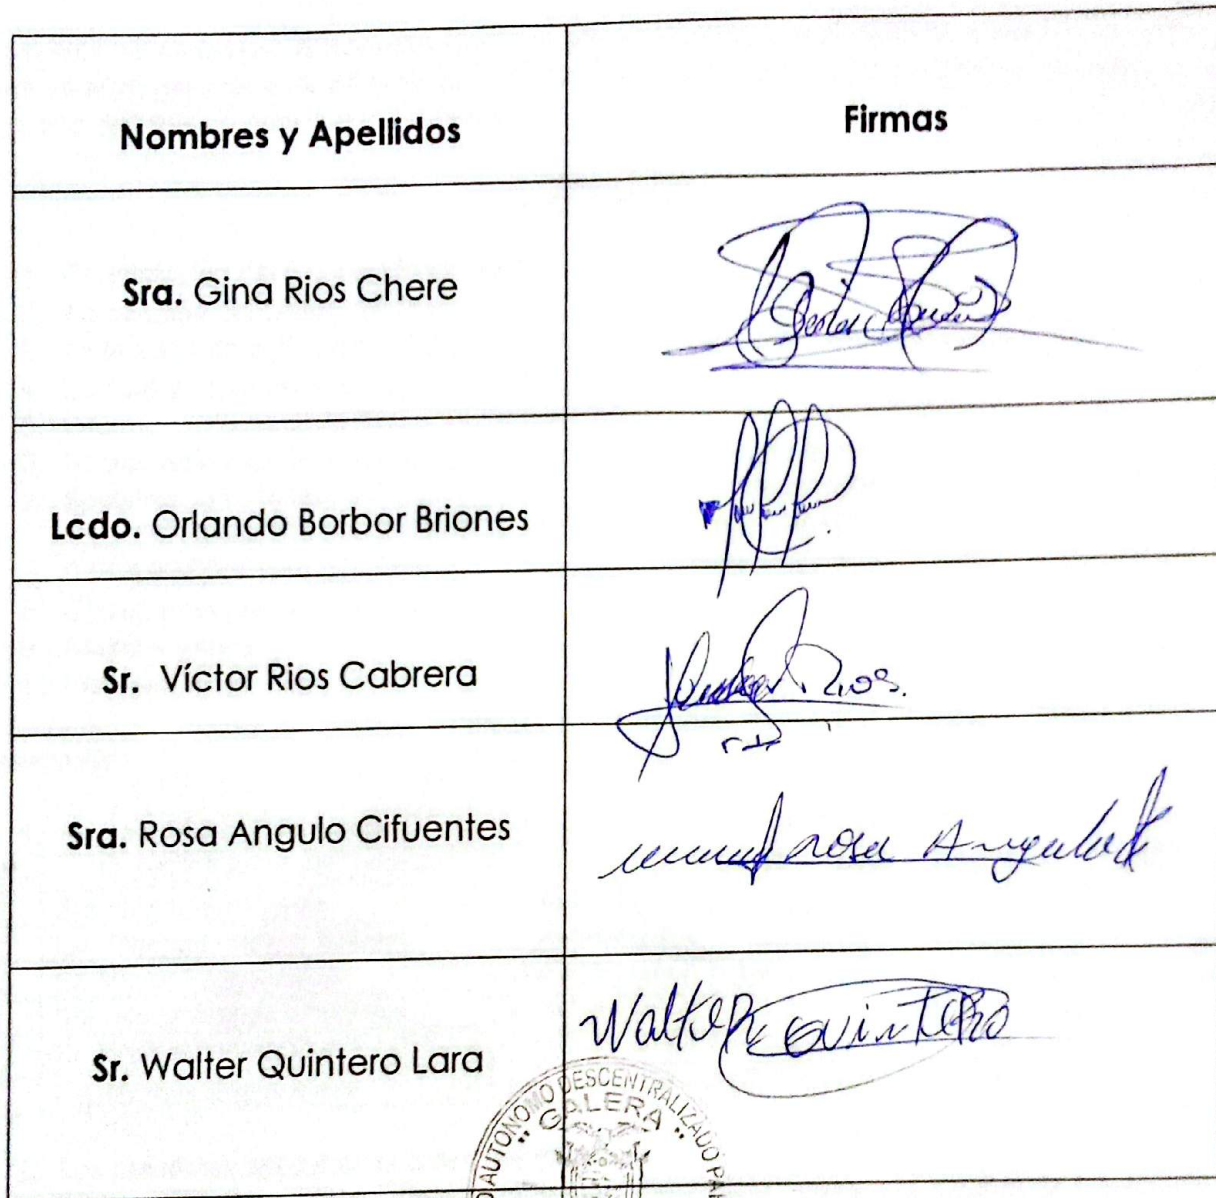 Nombres y Apellidos Firmas
Sra. Gina Rios Chere
Lcdo. Orlando Borbor Briones
Sr. Víctor Rios Cabrera Rios.
Sra. Rosa Angulo Cifuentes rosa Angulo
Sr. Walter Quintero Lara Walter Quintero
AUTONOMO DESCENTRALIZADO
"GALERA"